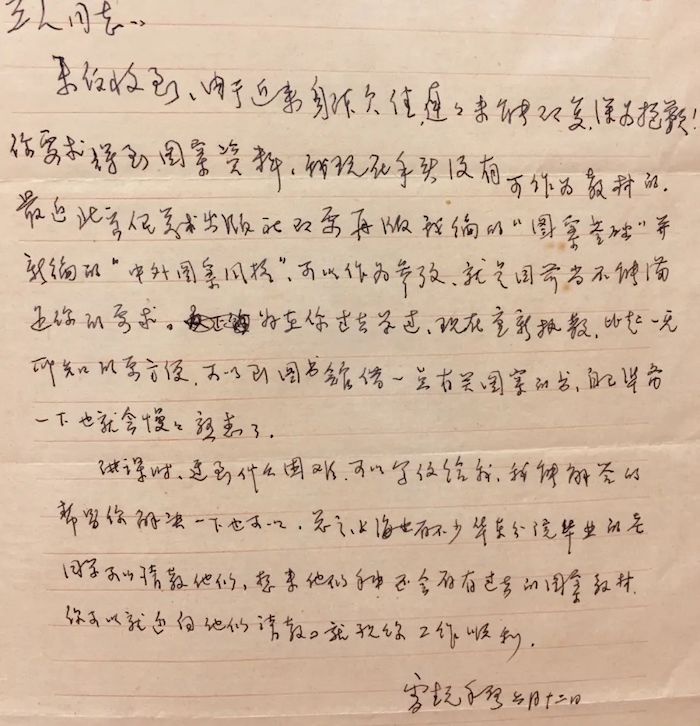 同志：
来信收到，由于近来身体欠佳，迟迟未能即复，深为抱歉！
你要求得到图案资料，我现在手头没有可作为教材的。
最近北京人民美术出版社即要再版我编的“图案基础”并
新编的“中外图案风格”，可以作为参考，就是目前尚不能满
足你的要求。好在你过去学过，现在重新执教，比起一无
所知的要方便，可以到图书馆借一些有关图案的书，自己准备
一下也就会慢慢熟悉了。
讲课时，遇到什么困难，可以写信给我，我能解答的
帮助你解决一下也可以，总之，上海也有不少华东分院毕业的老
同学可以请教他们，想来他们手中还会存有过去的图案教材，
你可以就近向他们请教。就祝你工作顺利。
六月十二日